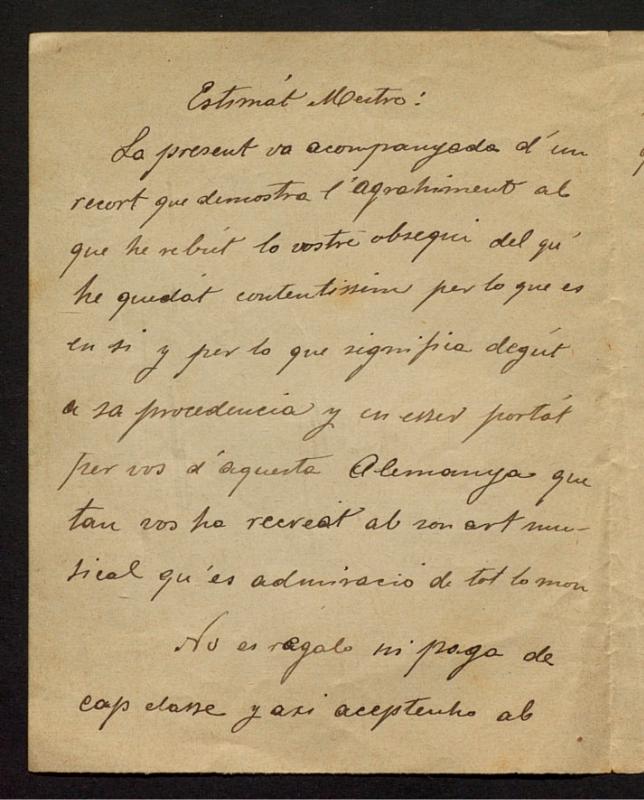 Estimát Mestro:
La present va acompanyada d'un
recort que demostra l'agrahiment ab
que he rebút lo vostre obsequi del qu'
he quedát contentissim per lo que es
en si y per lo que significa degút
a sa procedencia y en esser portát
per vos d'aquesta Alemanya que
tan vos ha recreát ab son art mu-
sical qu'es admiració de tot lo mon
No es regalo ni paga de
cap classe y axi aceptenho ab